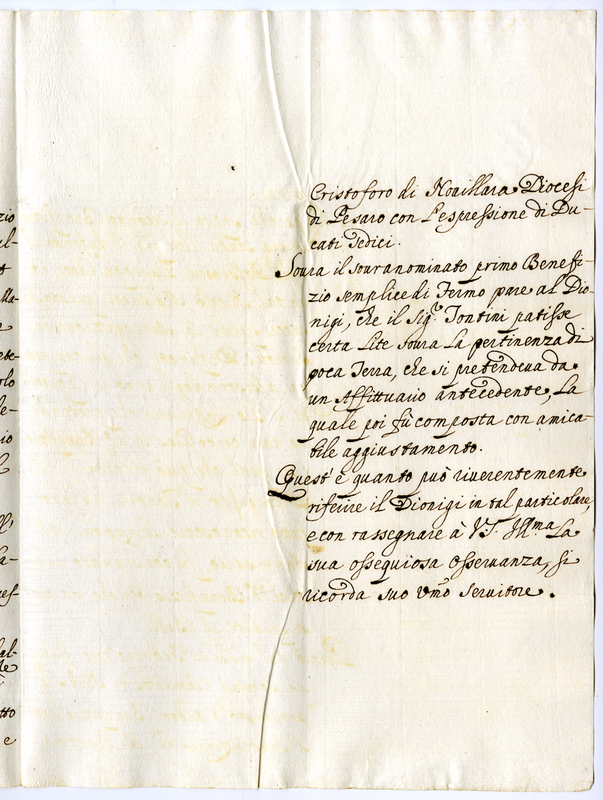 Cristoforo di Nouillara Diocesi
di Pesaro con l'espressione di Du-
cati Sedici.
Soura il souranominato primo Benefi-
zio semplice di Fermo pare al Dio-
nigi, che il Sig.r Tontini patisse
certa Lite soura la pertinenza di
poca Terra, che si pretendeua da
un Affittuario antecedente, La
quale poi fù composta con amica-
bile aggiustamento.
Quest' è quanto può riuerentemente
riferire il Dionigi in tal particolare,
e con rassegnare à V.S. Ill.ma La
sua ossequiosa osseruanza, si
ricorda suo Umo Seruitore.